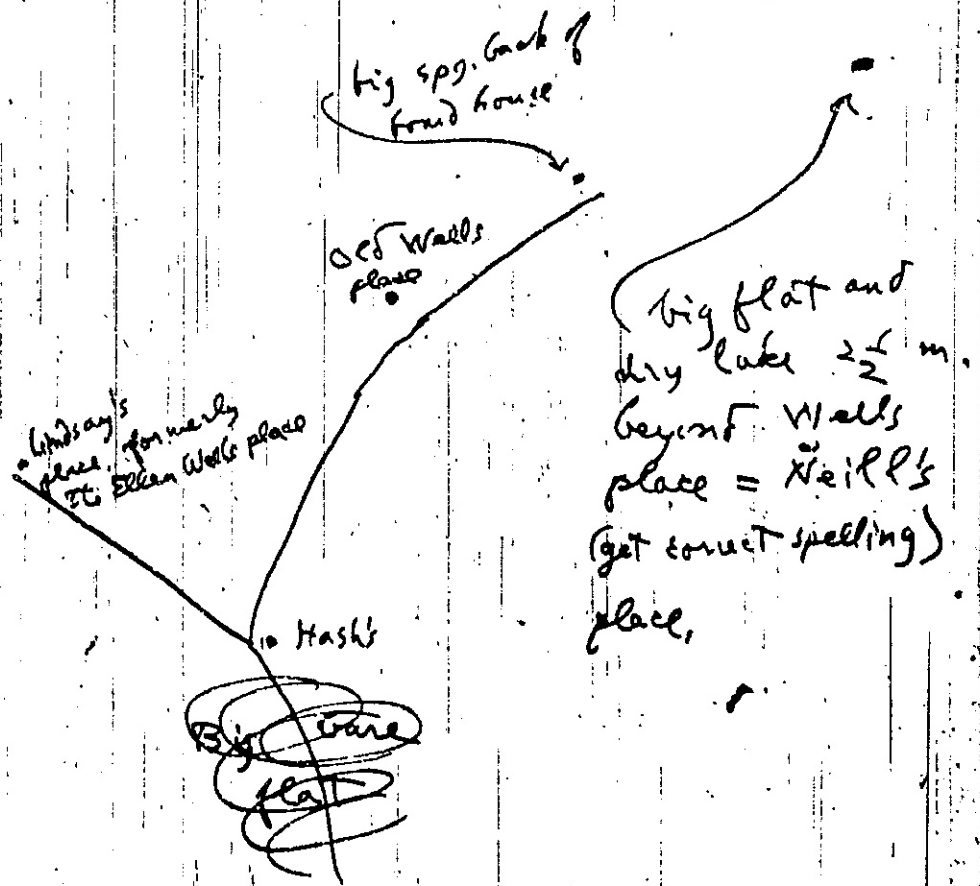 big spg. back of
house
Old Wells
place
Lindsay's
place, formerly
the Wells place
Hash's
Big bare
flat
big flat and
dry lake 2½ m.
beyond Wells
place = Neill's
(get correct spelling)
place,